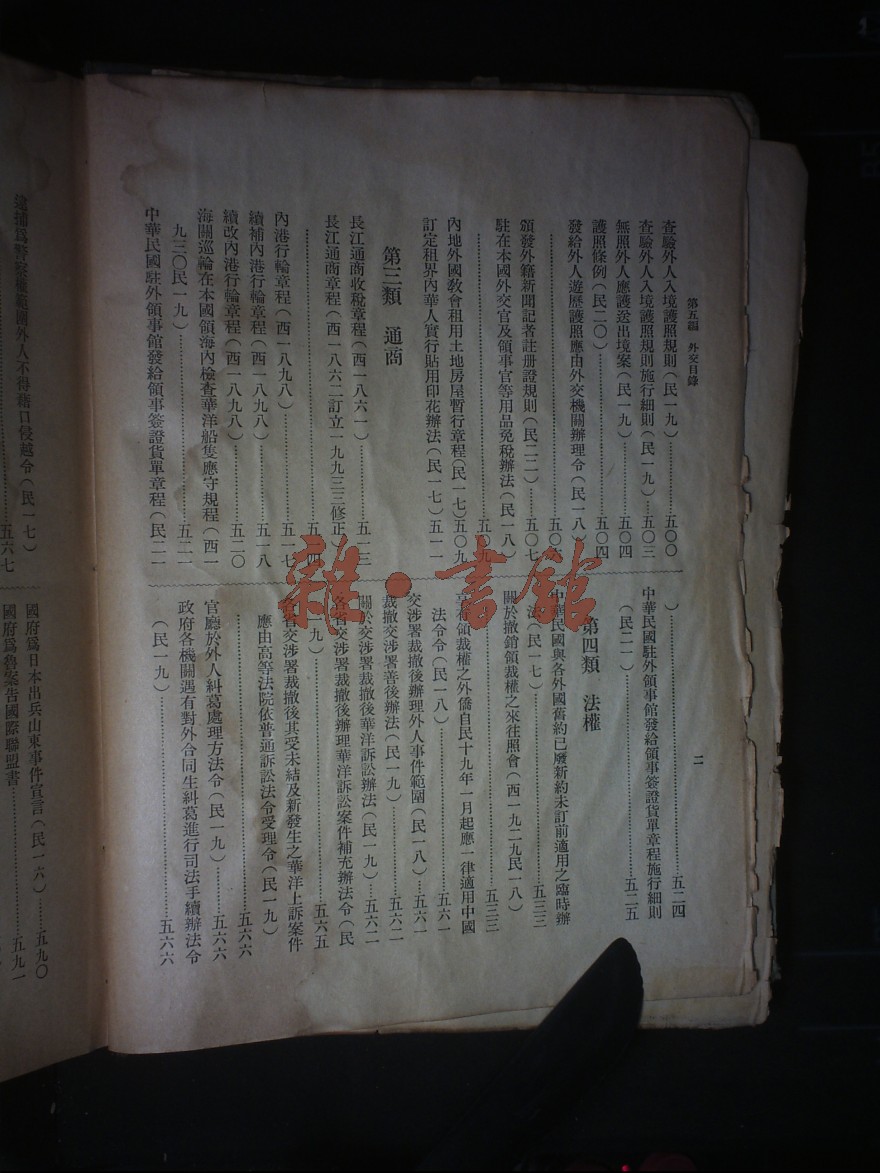 第五編 外交目錄
二
查驗外人入境護照規則(民一九)……五〇〇
查驗外人入境護照規則施行細則(民一九)…五〇三
無照外人應護送出境案(民一九)……五〇四
護照條例(民二〇)……五〇四
發給外人遊歷護照應由外交機關辦理令(民一八)
……五〇六
頒發外籍新聞記者註册證規則(民二二)……五〇七
駐在本國外交官及領事官等用品免稅辦法(民一八)
……五〇九
內地外國教會租用土地房屋暫行章程(民一七)五〇九
訂定租界內華人實行貼用印花辦法(民一七)五一一
第三類 通商
長江通商收稅章程(西一八六一)……五一三
長江通商章程(西一八六二訂立一九九三三修正)
……五一四
內港行輪章程(西一八九八)……五一七
續補內港行輪章程(西一八九八)……五一八
續改內港行輪章程(西一八九八)……五二〇
海關巡輪在本國領海內檢查華洋船隻應守規程(西一
九三〇民一九)……五二一
中華民國駐外領事館發給領事簽證貨單章程(民二一
)……五二四
中華民國駐外領事館發給領事簽證貨單章程施行細則
(民二一)……五二五
第四類 法權
中華民國與各外國舊約已廢新約未訂前適用之臨時辦
法(民一七)……五三三
關於撤銷領裁權之來往照會(西一九二九民一八)
……五三三
享有領裁權之外僑自民十九年一月起應一律適用中國
法令令(民一八)……五六一
交涉署裁撤後辦理外人事件範圍(民一八)…五六一
裁撤交涉署善後辦法(民一九)……五六二
關於交涉署裁撤後華洋訴訟辦法(民一九)…五六二
各省交涉署裁撤後辦理華洋訴訟案件補充辦法令(民
一九)……五六五
各省交涉署裁撤後其受未結及新發生之華洋上訴案件
應由高等法院依普通訴訟法令受理令(民一九)
……五六六
官廳於外人糾葛處理方法令(民一九)……五六六
政府各機關遇有對外合同生糾葛進行司法手續辦法令
(民一九)……五六六
逮捕爲警察權範圍外人不得藉口侵越令(民一七)
……五六七
國府爲日本出兵山東事件宣言(民一六)……五九〇
國府爲魯案告國際聯盟書……五九一
雜·書館